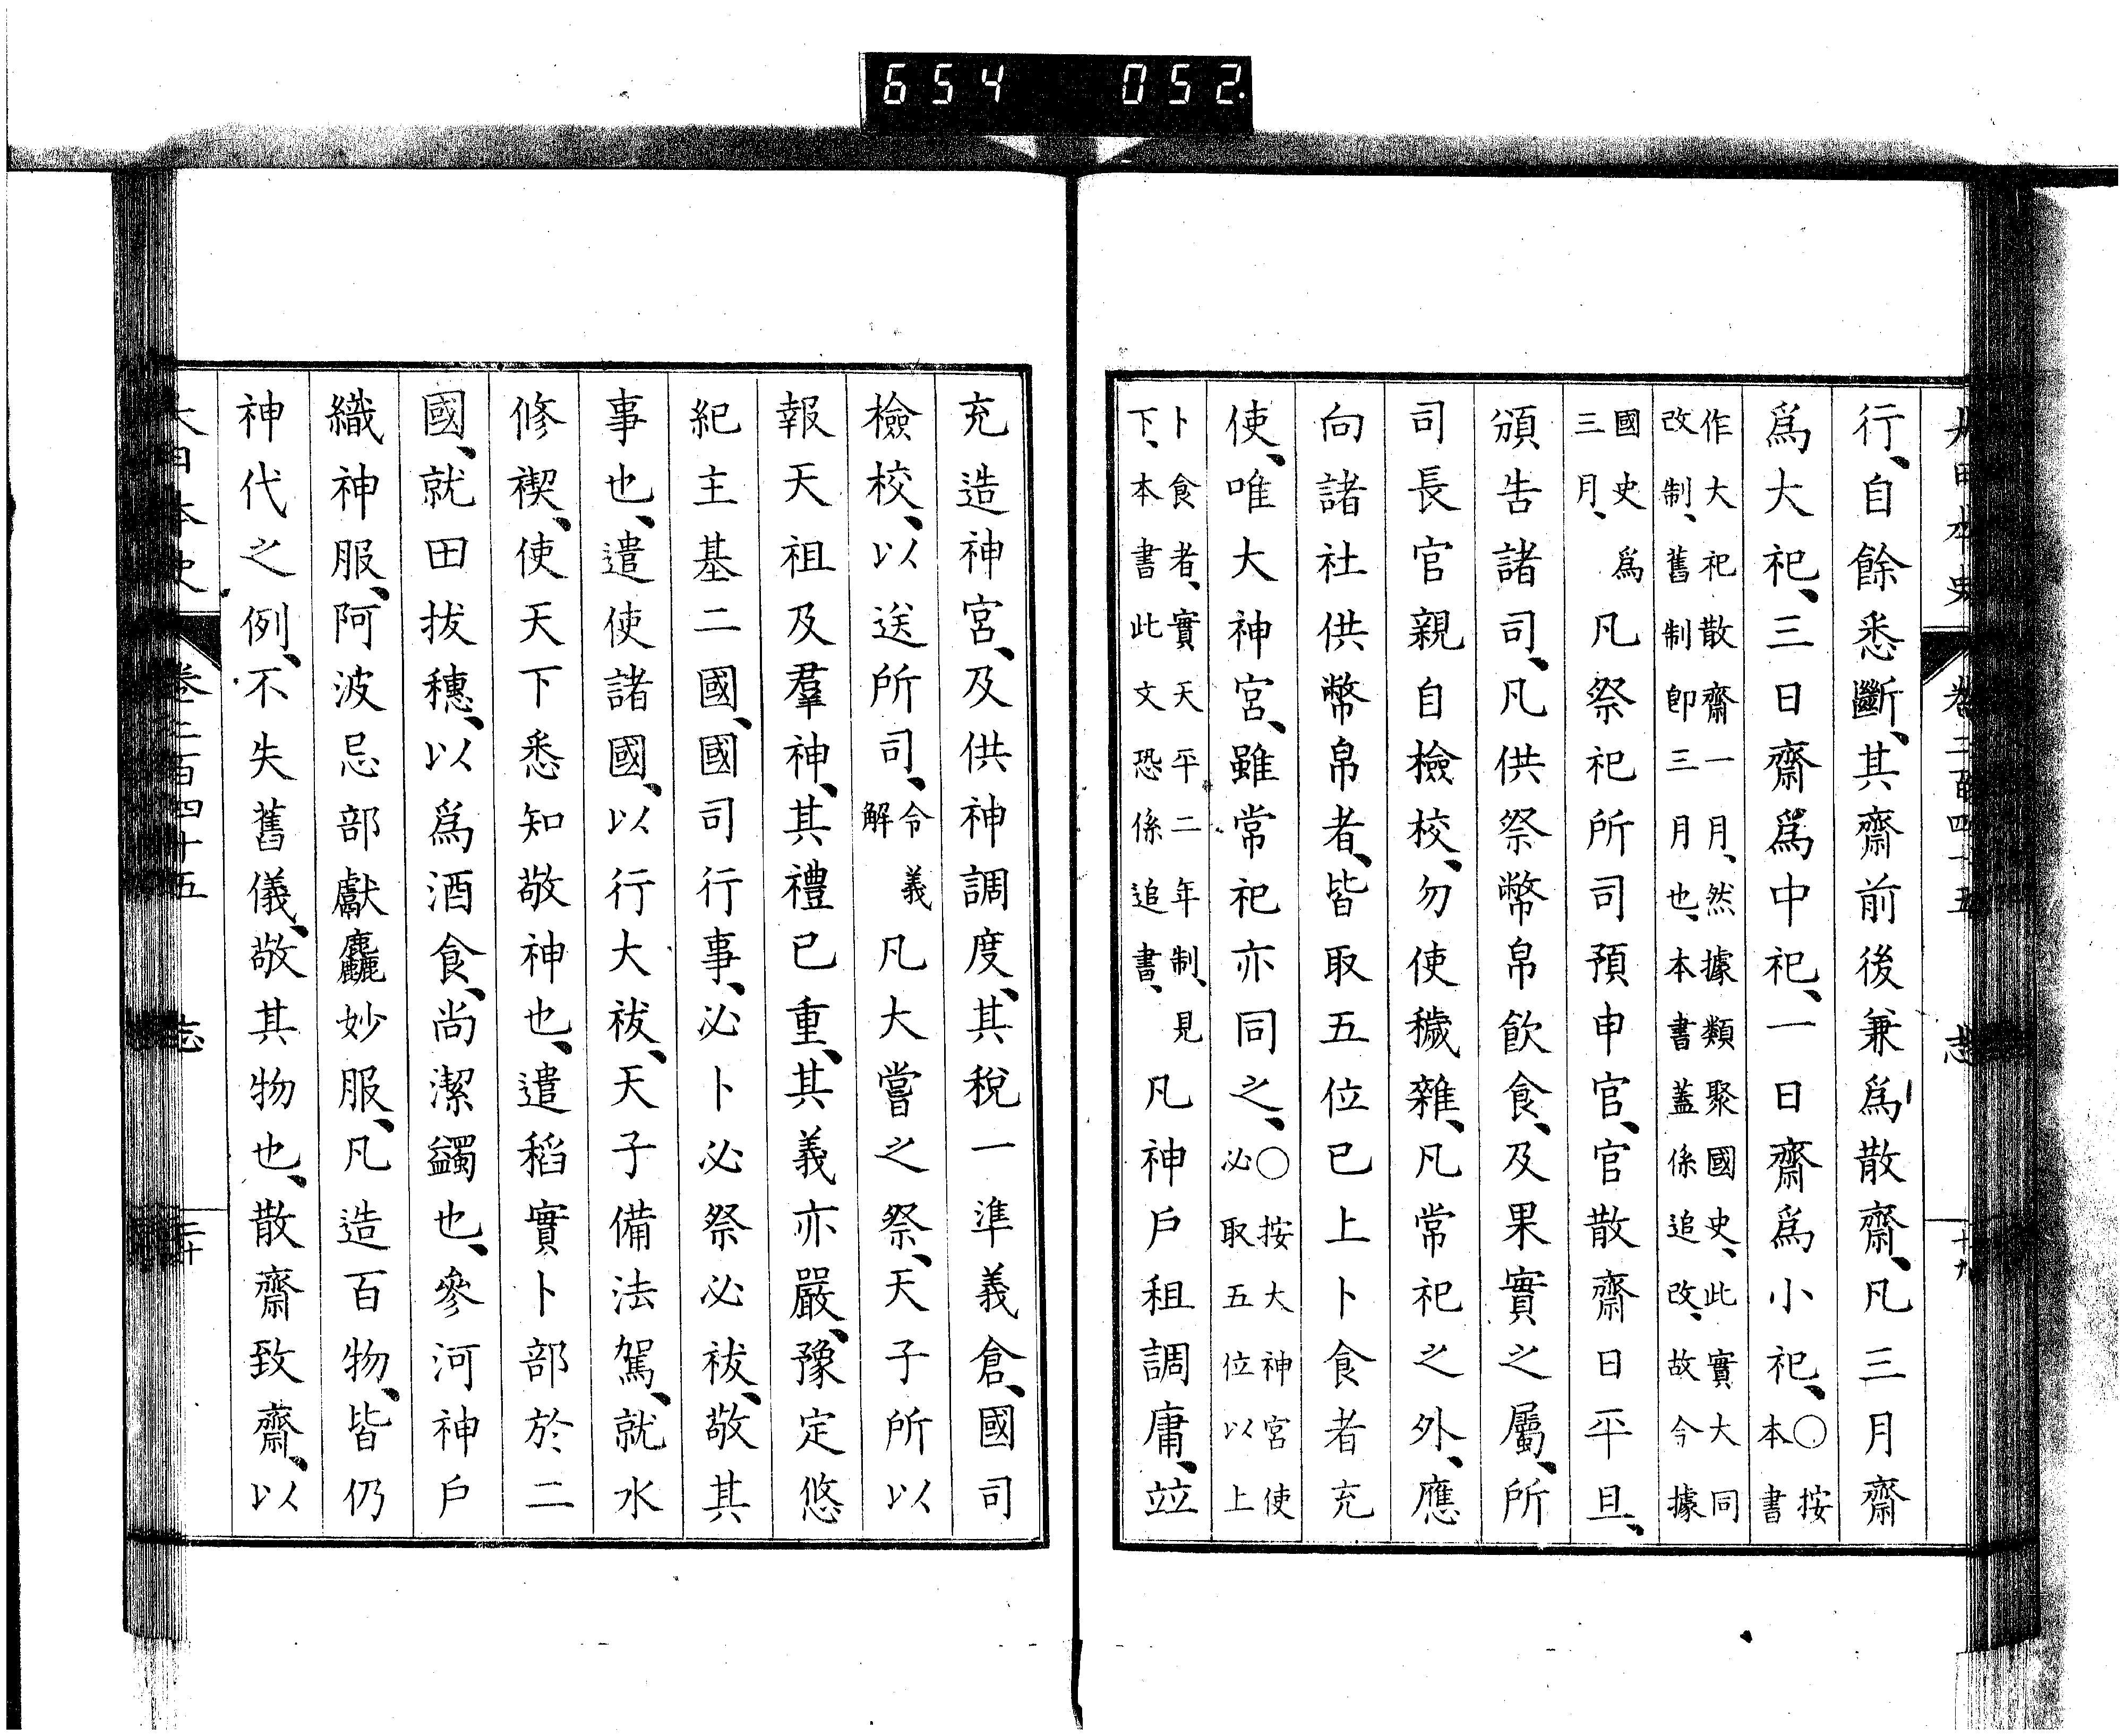 654 052
大日本史 卷二百四十五 志 十九
行、自餘悉斷、其齋前後兼爲散齋、凡三月齋
爲大祀、三日齋爲中祀、一日齋爲小祀、○按本書
作大祀散齋一月、然據類聚國史、此實大同
改制、舊制卽三月也、本書蓋係追改、故今據
國史爲三月、凡祭祀所司預申官、官散齋日平旦、
頒告諸司、凡供祭幣帛飮食、及果實之屬、所
司長官親自檢校、勿使穢雜、凡常祀之外、應
向諸社供幣帛者、皆取五位已上卜食者充
使、唯大神宮、雖常祀亦同之、○按大神宮使必取五位以上
卜食者、實天平二年制、見下、本書此文恐係追書、凡神戶租調庸、竝
充造神宮、及供神調度、其稅一準義倉、國司
檢校、以送所司、令義解凡大嘗之祭、天子所以
報天祖及羣神、其禮已重、其義亦嚴、豫定悠
紀主基二國、國司行事、必卜必祭必祓、敬其
事也、遣使諸國、以行大祓、天子備法駕、就水
修禊、使天下悉知敬神也、遣稻實卜部於二
國、就田拔穗、以爲酒食、尚潔蠲也、參河神戶
織神服、阿波忌部獻麤妙服、凡造百物、皆仍
神代之例、不失舊儀、敬其物也、散齋致齋、以
大日本史 卷二百四十五 志 二十